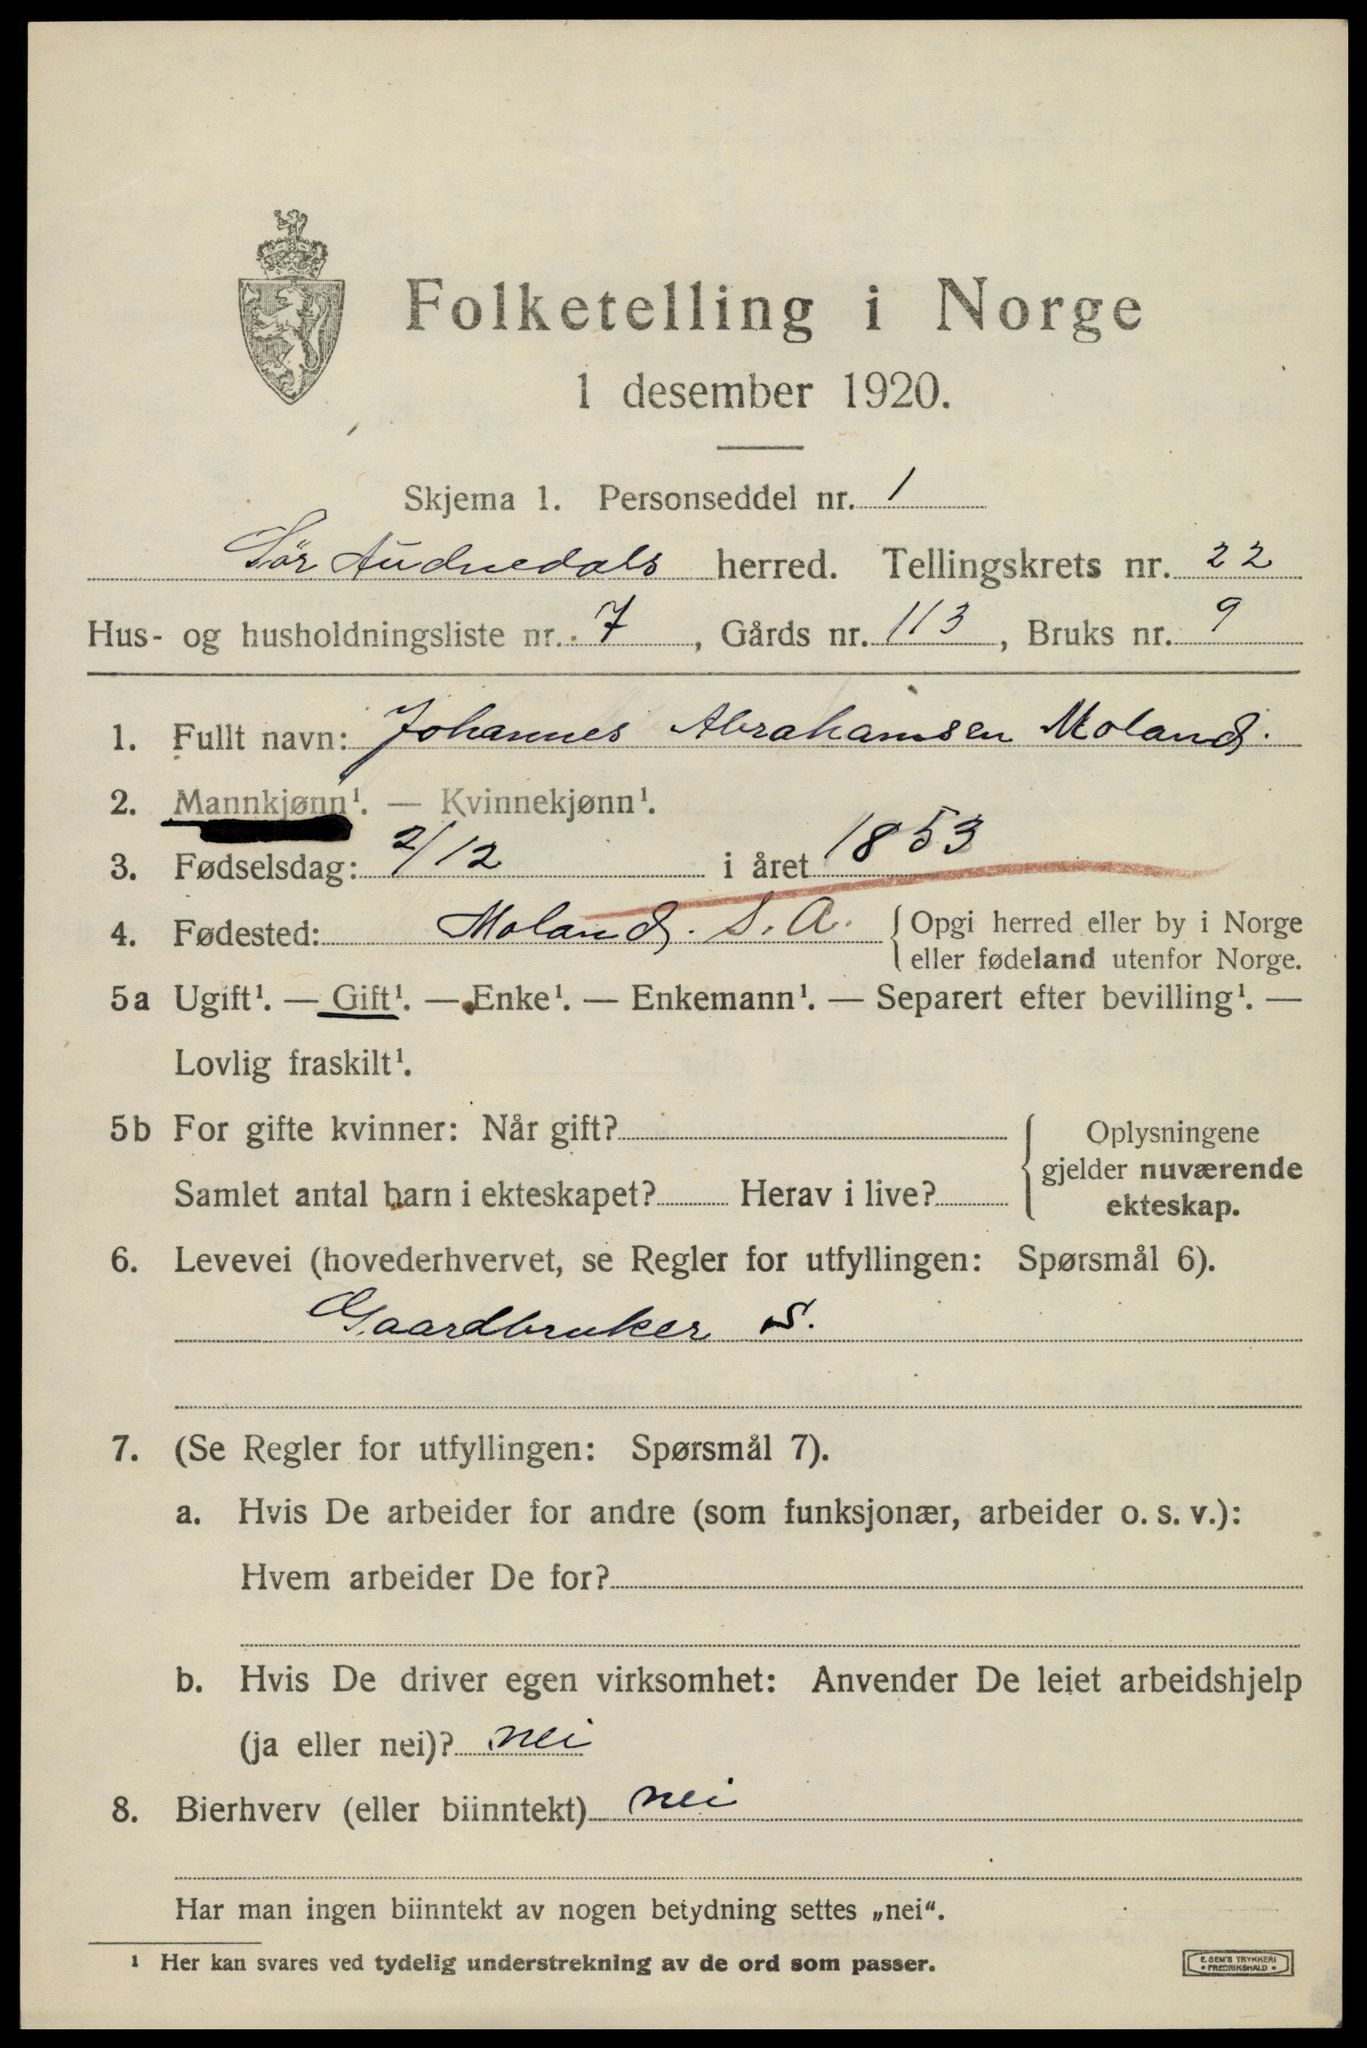 Folketelling i Norge
1 desember 1920.
Skjema 1. Personseddel nr. 1
Sör Audnedals herred. Tellingskrets nr. 22
Hus- og husholdningsliste nr. 7, Gårds nr. 113, Bruks nr. 9
1. Fullt navn: Johannes Abrahamsen Moland.
2. Mannkjønn¹. — Kvinnekjønn¹.
3. Fødselsdag: 2/12 i året 1853
4. Fødested: Moland. S. A. { Opgi herred eller by i Norge
eller fødeland utenfor Norge.
5a Ugift¹. — Gift¹. — Enke¹. — Enkemann¹. — Separert efter bevilling¹. —
Lovlig fraskilt¹.
5b For gifte kvinner: Når gift?
Samlet antal barn i ekteskapet? Herav i live?
Oplysningene
gjelder nuværende
ekteskap.
6. Levevei (hovederhvervet, se Regler for utfyllingen: Spørsmål 6).
Gaardbruker S.
7. (Se Regler for utfyllingen: Spørsmål 7).
a. Hvis De arbeider for andre (som funksjonær, arbeider o. s. v.):
Hvem arbeider De for?
b. Hvis De driver egen virksomhet: Anvender De leiet arbeidshjelp
(ja eller nei)? nei
8. Bierhverv (eller biinntekt) nei
Har man ingen biinntekt av nogen betydning settes „nei“.
¹ Her kan svares ved tydelig understrekning av de ord som passer.
E. SEM'S TRYKKERI
• FREDRIKSHALD •